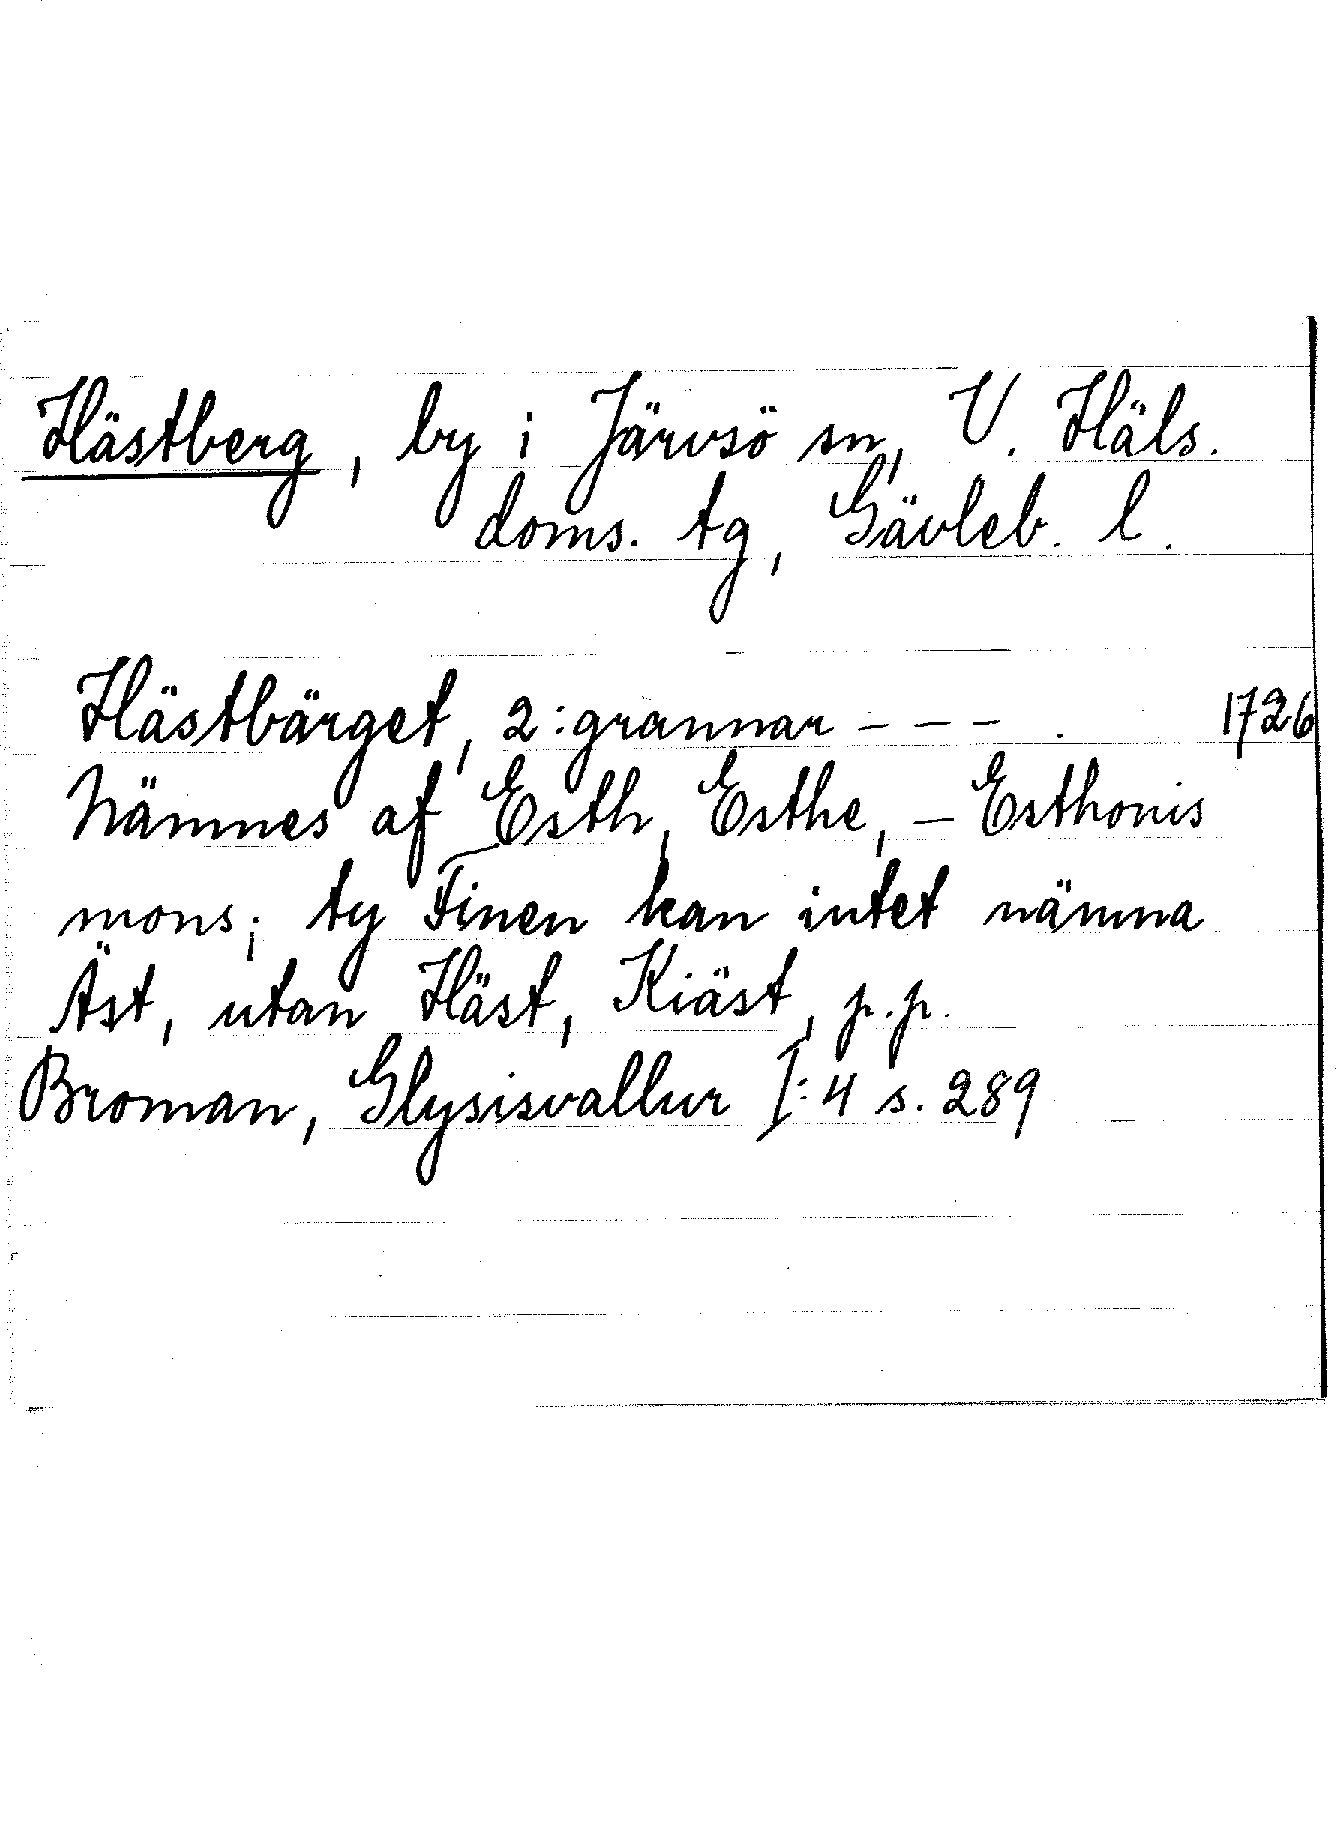 Hästberg, by i Järvsö sn, V. Häls.
doms. tg, Gävleb. l.
Hästbärget, 2:grannar - - - . 1726
Nämnes af Esth, Esthe, – Esthonis
mons; ty Finen kan intet nämna
Äst, utan Häst, Kiäst, p.p.
Broman, Glysisvallur I:4 s. 289